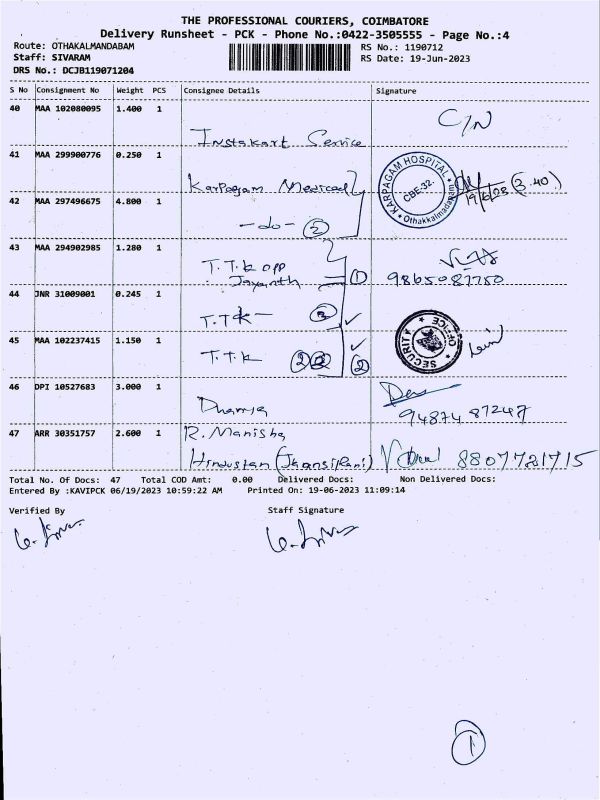 THE PROFESSIONAL COURIERS, COIMBATORE
Delivery Runsheet - PCK - Phone No.:0422-3505555 - Page No.:4
Route: OTHAKALMANDABAM RS No.: 1190712
Staff: SIVARAM RS Date: 19-Jun-2023
DRS No.: DCJB119071204
S No Consignment No Weight PCS Consignee Details Signature
40 MAA 102080095 1.400 1
C/N
Instakart Service
41 MAA 299900776 0.250 1
KARPAGAM HOSPITAL
CBE-32.
Othakkalmadapam
Karpagam Medical 19/6/23 (3.40)
42 MAA 297496675 4.800 1
-do- 2
43 MAA 294902985 1.280 1
T.T.K opp
Jayanth 1 9865087750
44 JNR 31009001 0.245 1
T.TK-
45 MAA 102237415 1.150 1
SECURITY OFFICE
T.T.K 2
46 DPI 10527683 3.000 1
Dhamja 94874 87247
47 ARR 30351757 2.600 1 R. Manisha
Hindustan (Jhansi Rani) 8807721715
Total No. Of Docs: 47 Total COD Amt: 0.00 Delivered Docs: Non Delivered Docs:
Entered By :KAVIPCK 06/19/2023 10:59:22 AM Printed On: 19-06-2023 11:09:14
Verified By Staff Signature
1